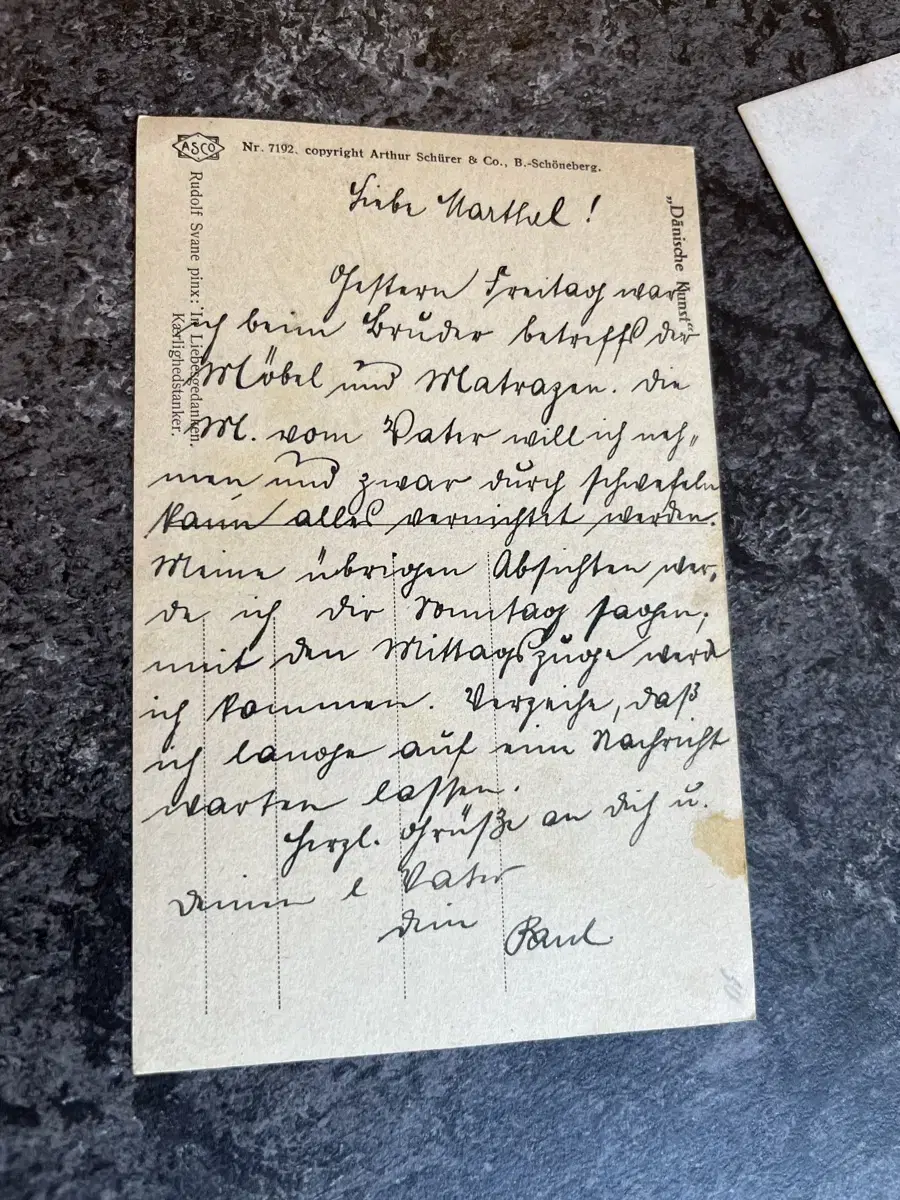 ASCO
Nr. 7192. copyright Arthur Schürer & Co., B.-Schöneberg.
Rudolf Svane pinx: In Liebesgedanken.
Kærlighedstanker.
„Dänische Kunst“
Liebe Marthel!
Gestern Freitag war
ich beim Bruder betreffs der
Möbel und Matrazen. Die
M. vom Vater will ich neh„
men und zwar durch schwefeln
kann alles vernichtet werden.
Meine übrigen Absichten wer„
de ich dir Sonntag sagen;
mit den Mittagszuge werd
ich kommen. Verzeihe, daß
ich lange auf eine Nachricht
warten lassen.
Herzl. Grüße an Dich u.
deinen l Vater
dein Paul